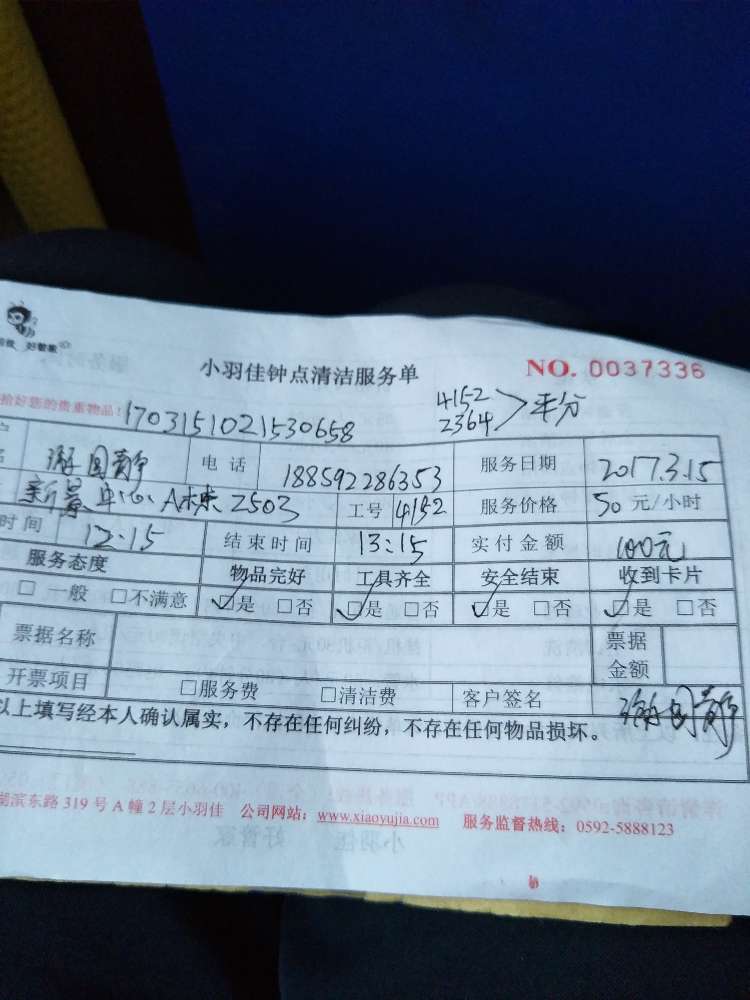 好管家
小羽佳钟点清洁服务单 NO. 0037336
拾好您的贵重物品! 1703151021530658 4152 2364 > 平分
名 游国静 电话 188592286353 服务日期 2017.3.15
新景中心A栋2503 工号 4152 服务价格 50 元/小时
时间 12:15 结束时间 13:15 实付金额 100元
服务态度 物品完好 工具齐全 安全结束 收到卡片
□一般 □不满意 ☑是 □否 ☑是 □否 ☑是 □否 ☑是 □否
票据名称 票据金额
开票项目 □服务费 □清洁费 客户签名 游国静
以上填写经本人确认属实,不存在任何纠纷,不存在任何物品损坏。
湖滨东路 319 号 A 幢 2 层小羽佳 公司网站:www.xiaoyujia.com 服务监督热线:0592-5888123